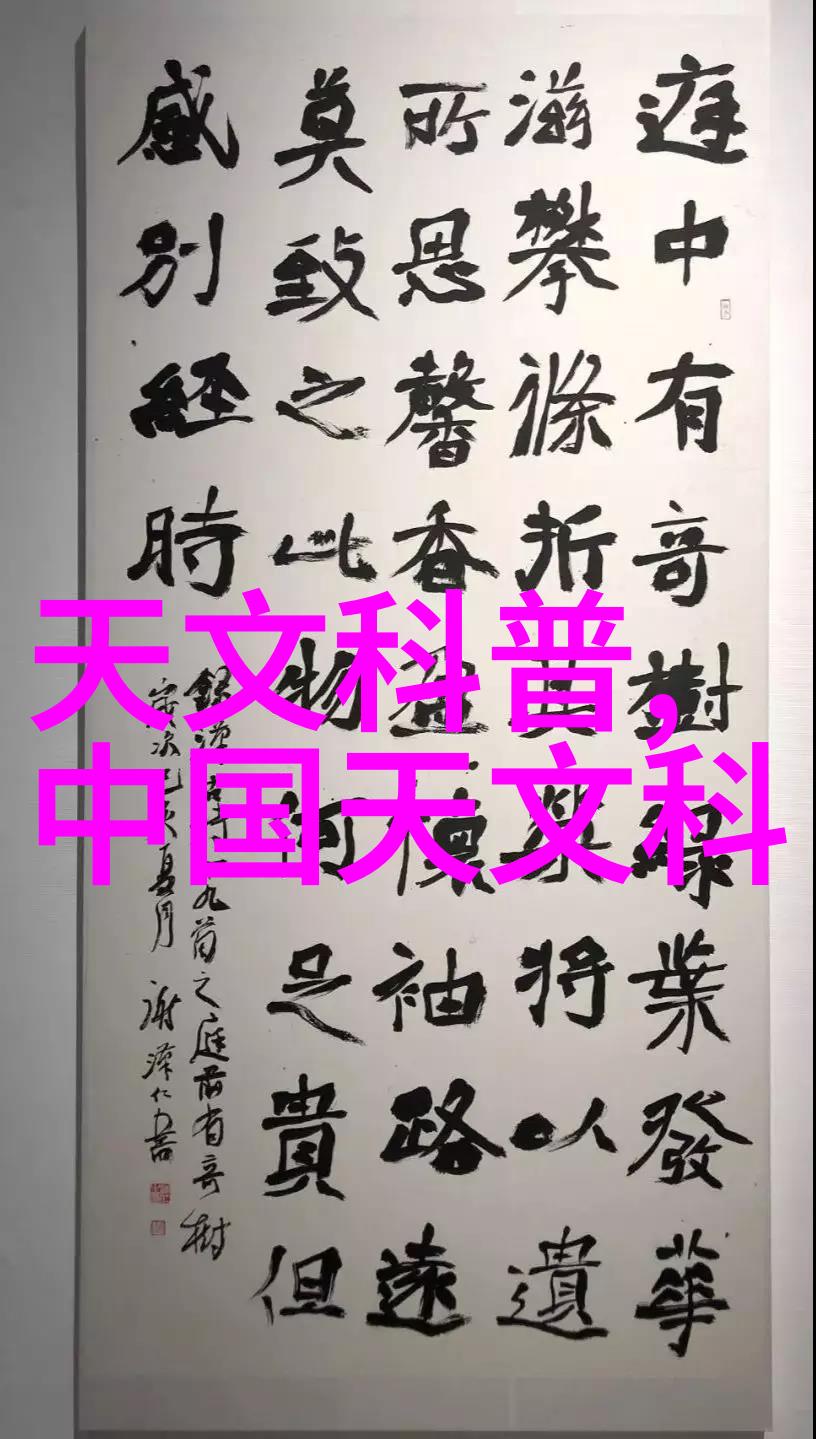 庭中有奇樹綠葉發華
滋攀條折其榮將以遺
所思馨香盈懷袖路遠
莫致之此物何足貴但
感別經時
錄漢古詩十九首之庭前有奇樹
歲次己亥夏月 謝澤仁書
天文科普,
中国天文科